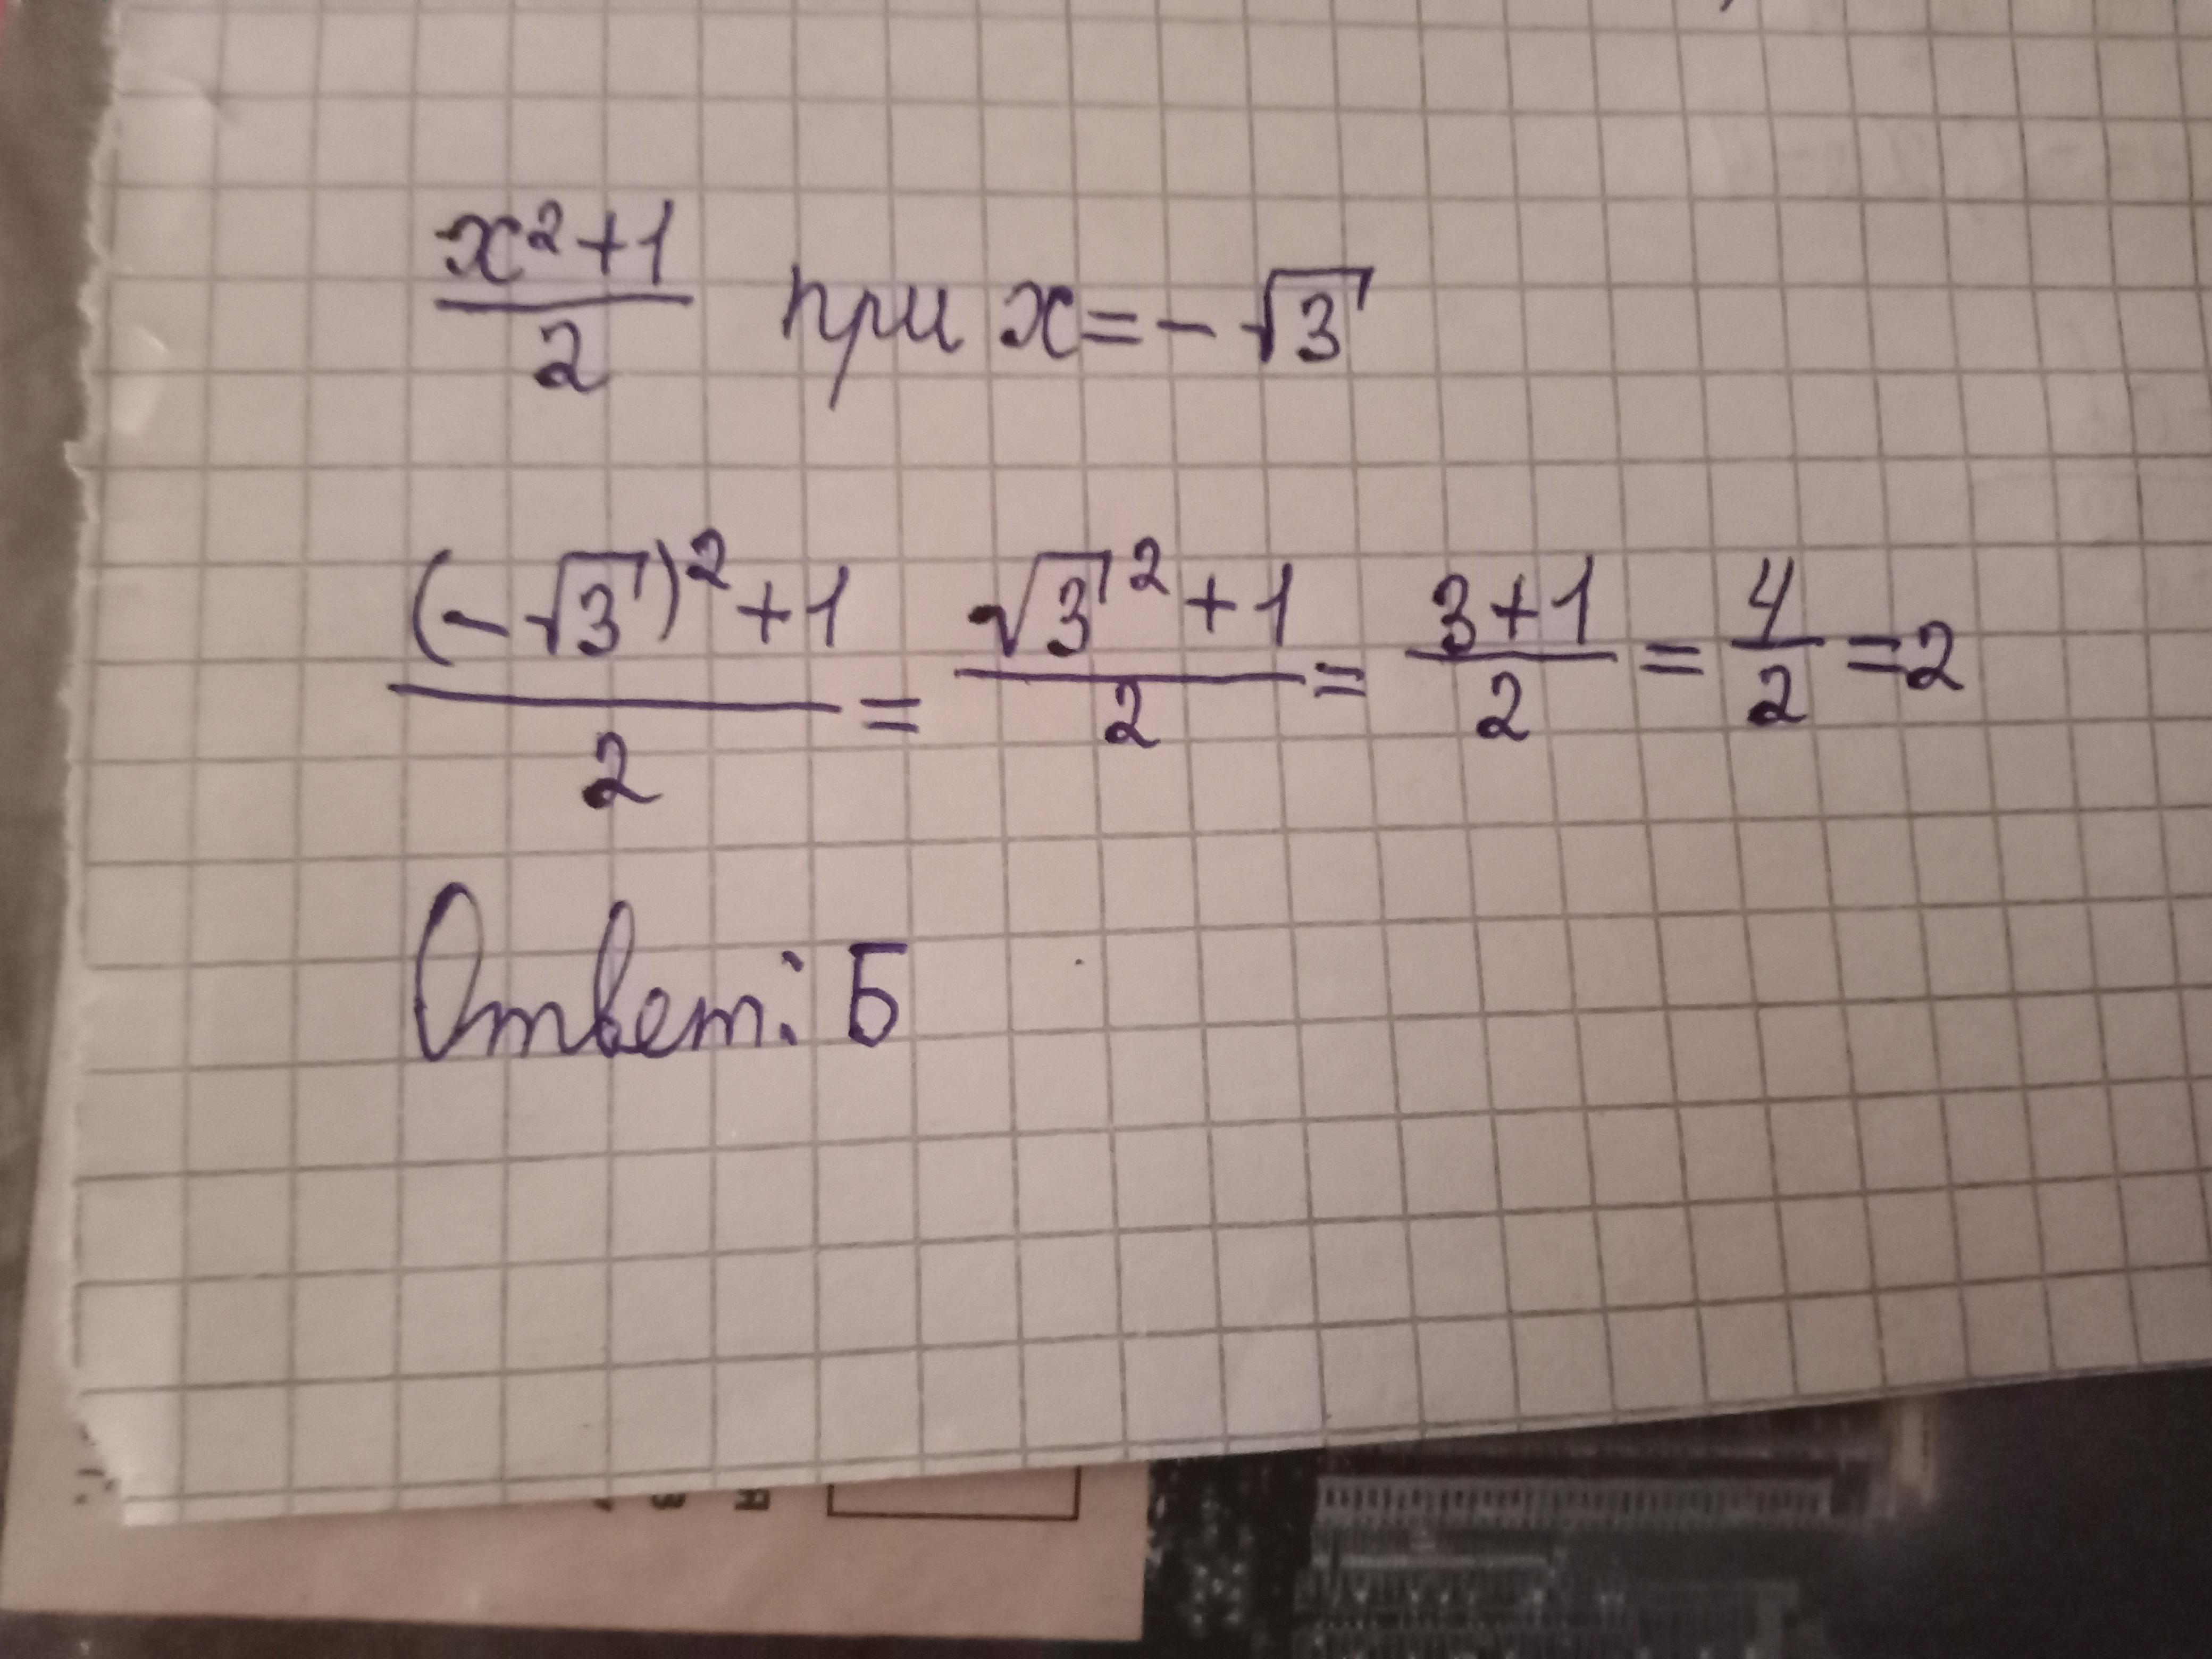 x²+1/2 при x=-√3
(-√3)²+1/2 = √3²+1/2 = 3+1/2 = 4/2 =2
Ответ: Б